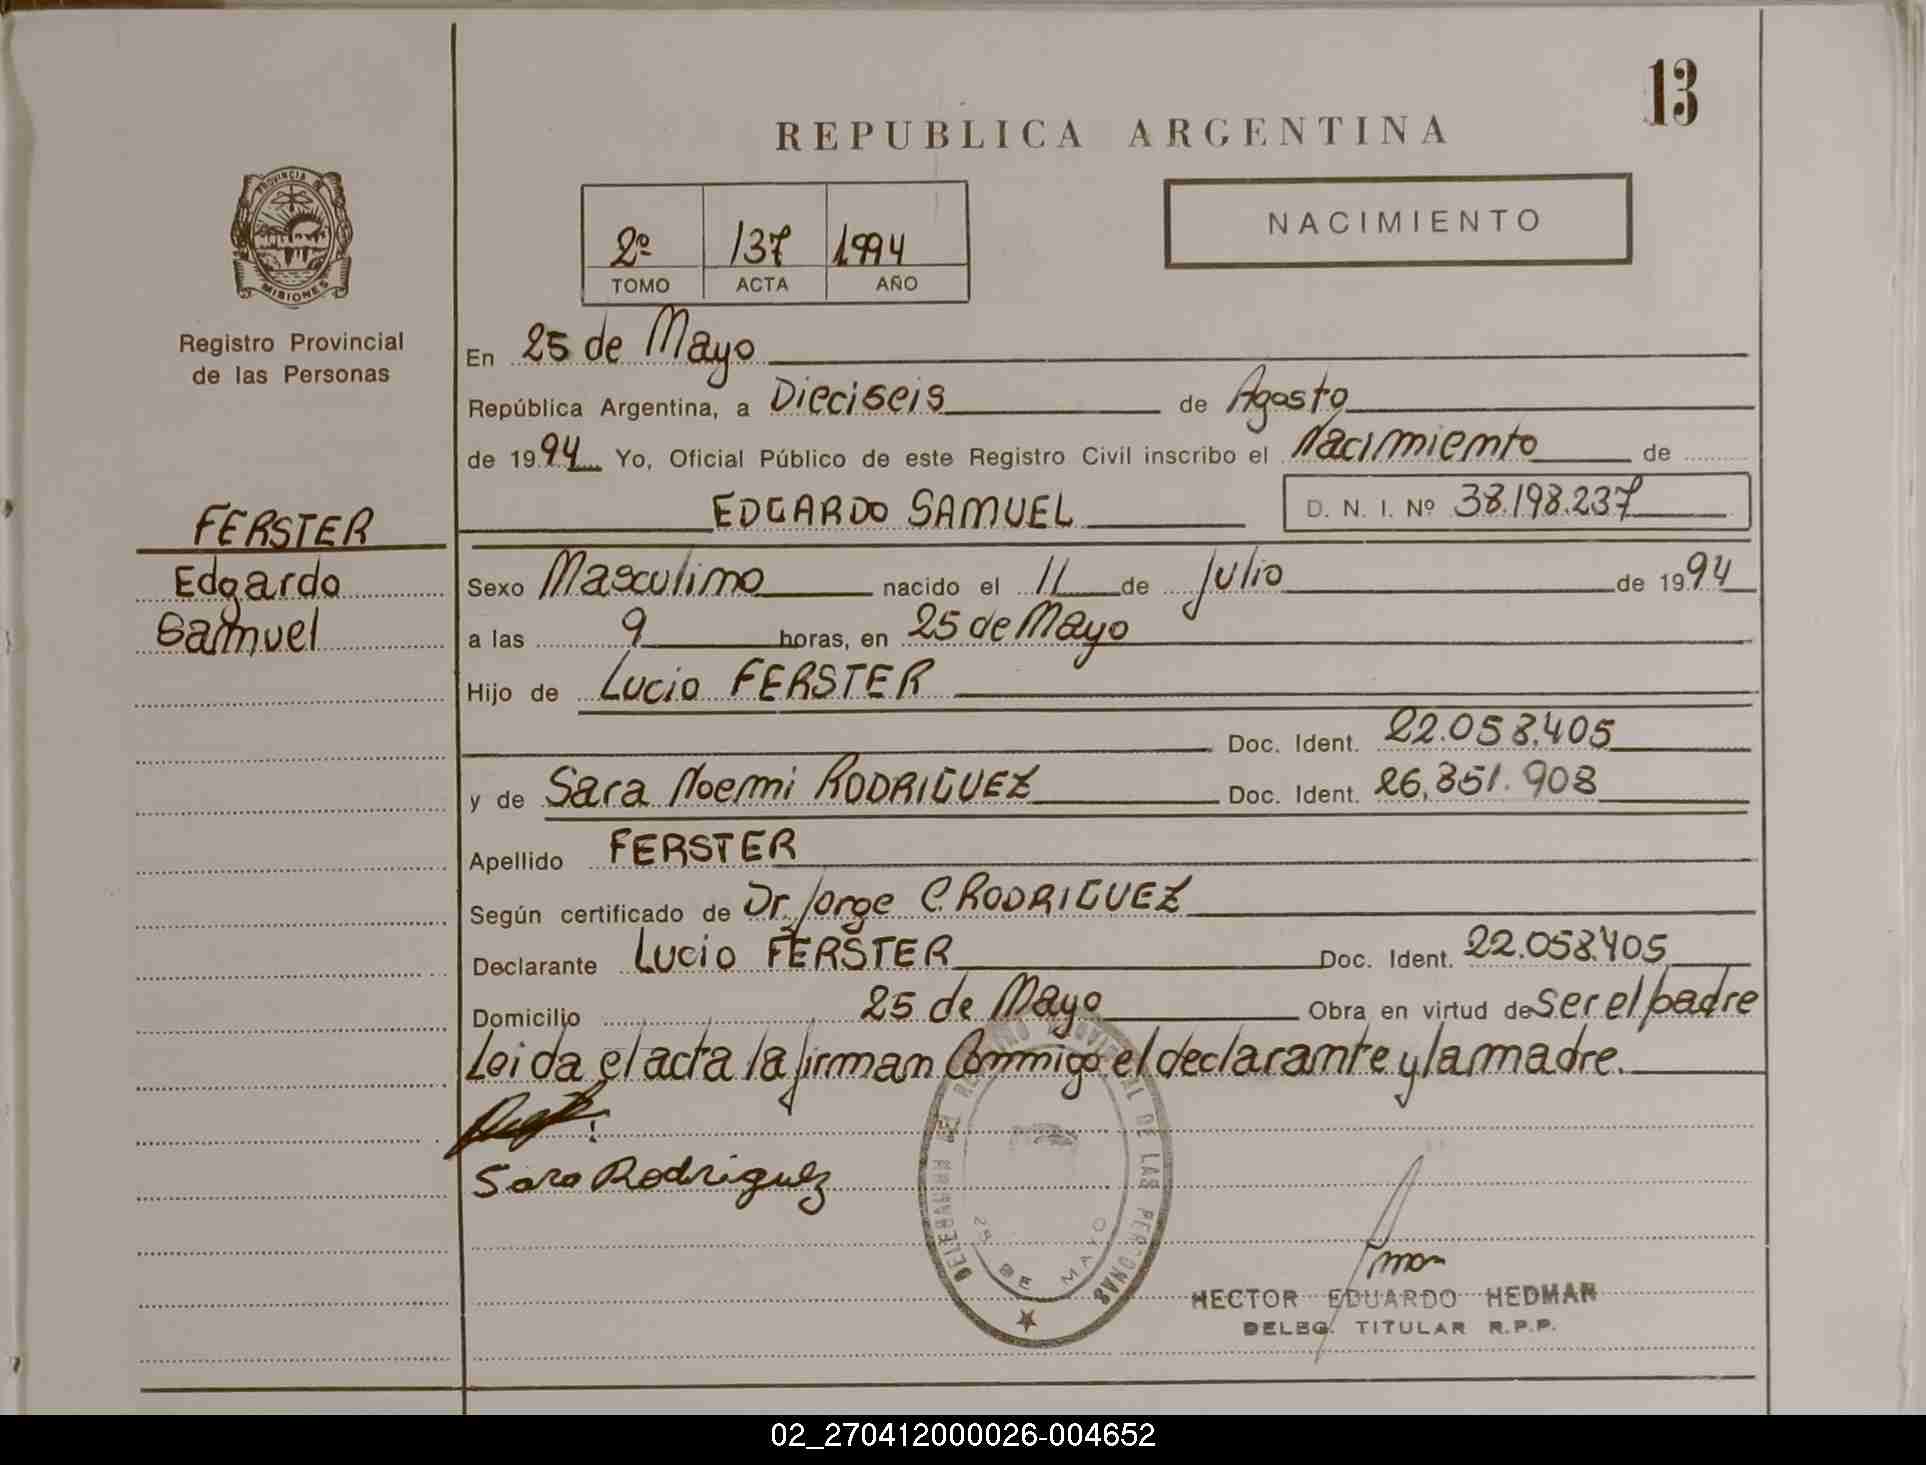 13
REPUBLICA ARGENTINA
PROVINCIA DE
MISIONES
Registro Provincial
de las Personas
2º 137 1994
TOMO ACTA AÑO
NACIMIENTO
En 25 de Mayo
República Argentina, a Dieciseis de Agosto
de 1994 Yo, Oficial Público de este Registro Civil inscribo el Nacimiento de
EDGARDO SAMUEL D. N. I. Nº 38.198.237
FERSTER
Edgardo
Samuel
Sexo Masculino nacido el 11 de Julio de 1994
a las 9 horas, en 25 de Mayo
Hijo de Lucio FERSTER
Doc. Ident. 22.058.405
y de Sara Noemi RODRIGUEZ Doc. Ident. 26.851.908
Apellido FERSTER
Según certificado de Dr. Jorge C. RODRIGUEZ
Declarante Lucio FERSTER Doc. Ident. 22.058.405
Domicilio 25 de Mayo Obra en virtud de Ser el padre
Leida el acta la firman Conmigo el declarante y la madre.
Sara Rodriguez
REGISTRO PROVINCIAL DE LAS PERSONAS
25 DE MAYO
HECTOR EDUARDO HEDMAN
DELEG. TITULAR R.P.P.
02_270412000026-004652